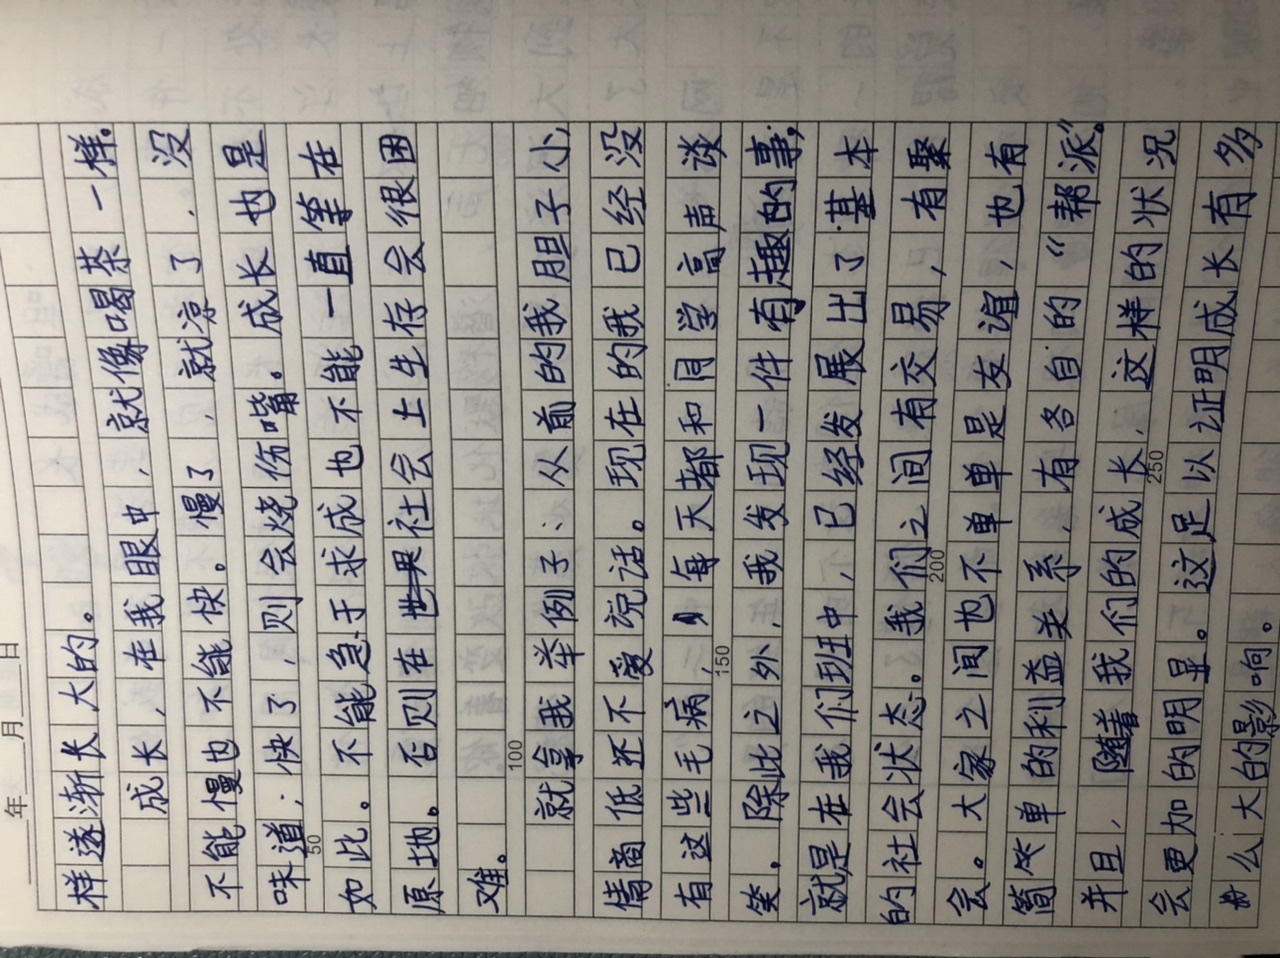 年 月 日
样逐渐长大的。
成长，在我眼中，就像喝茶一样。
不能慢也不能快。慢了，就凉了，没
味道；快了，则会烧伤嘴。成长也是
如此。不能急于求成也不能一直笔在
原地。否则在社会上生存会很困
难。
就拿我举例子：从前的我胆子小，
情商低还不爱说话。现在的我已经没
有这些毛病，每天都和同学高声谈
笑。除此之外，我发现一件有趣的事，
就是在我们班中，已经发展出了基本
的社会状态。我们之间有交易，有聚
会。大家之间也不单单是友谊，也有
简单的利益关系，有各自的“帮派”。
并且，随着我们的成长，这样的状况
会更加的明显。这足以证明成长有多
么大的影响。
50
100
150
200
250